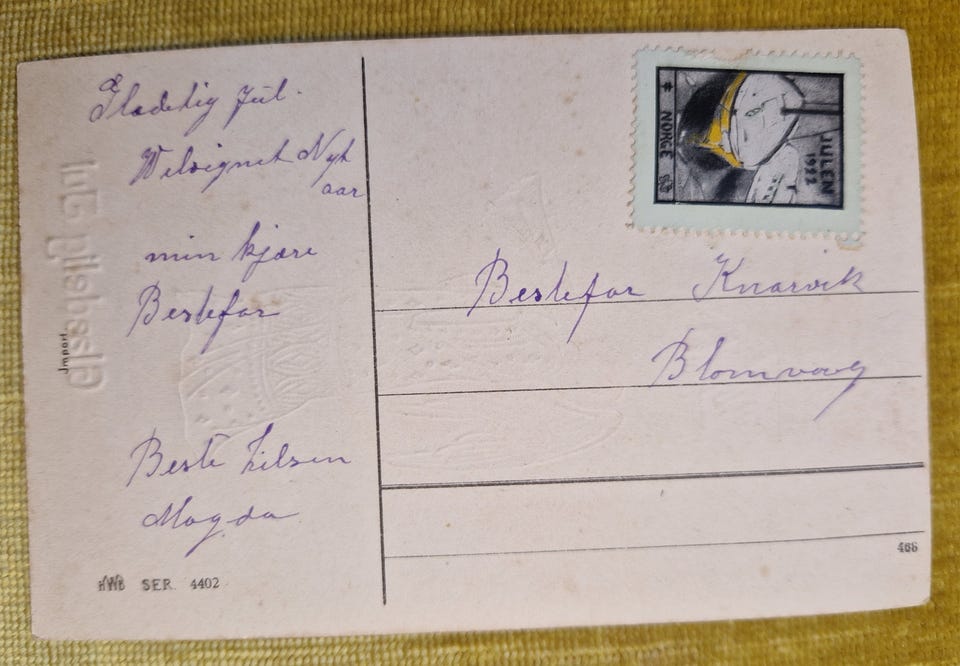 Glædelig Jul.
Velsignet Nyt
aar
min kjære
Bestefar
Beste hilsen
Magda
Import
HWB SER. 4402
JULEN
1922
NORGE
Bestefar Knarvik
Blomvaag
466